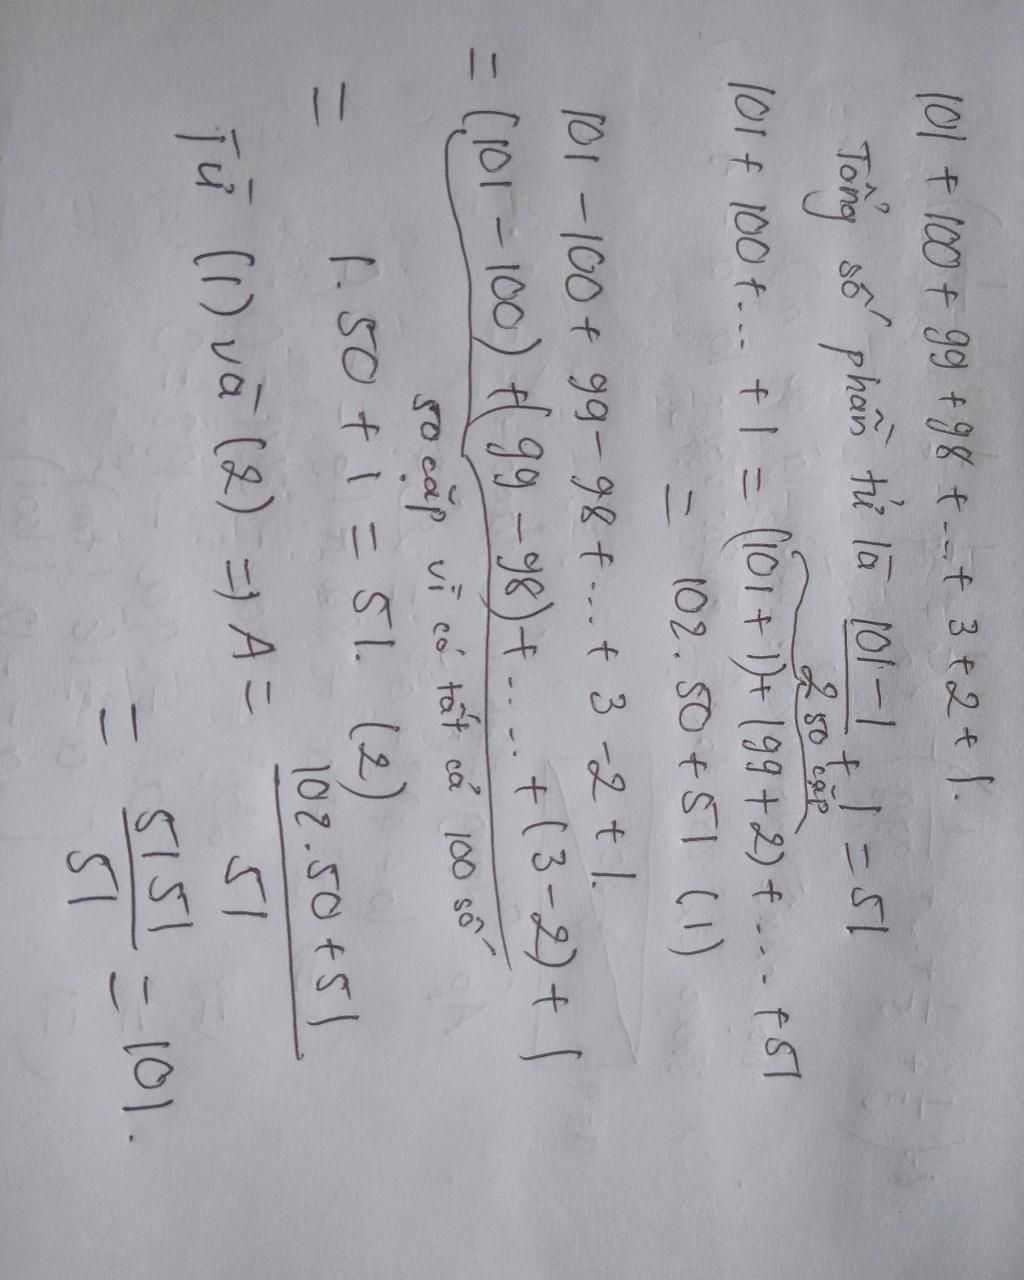 101 + 100 + 99 + 98 + ... + 3 + 2 + 1.
Tổng số phần tử là 101 - 1 / 2 + 1 = 51
50 cặp
101 + 100 + ... + 1 = (101 + 1) + (99 + 2) + ... + 51
= 102 . 50 + 51 (1)
101 - 100 + 99 - 98 + ... + 3 - 2 + 1.
= (101 - 100) + (99 - 98) + .... + (3 - 2) + 1
50 cặp vì có tất cả 100 số
= 1. 50 + 1 = 51. (2)
Từ (1) và (2) => A = 102.50 + 51 / 51
= 51.51 / 51 = 101.